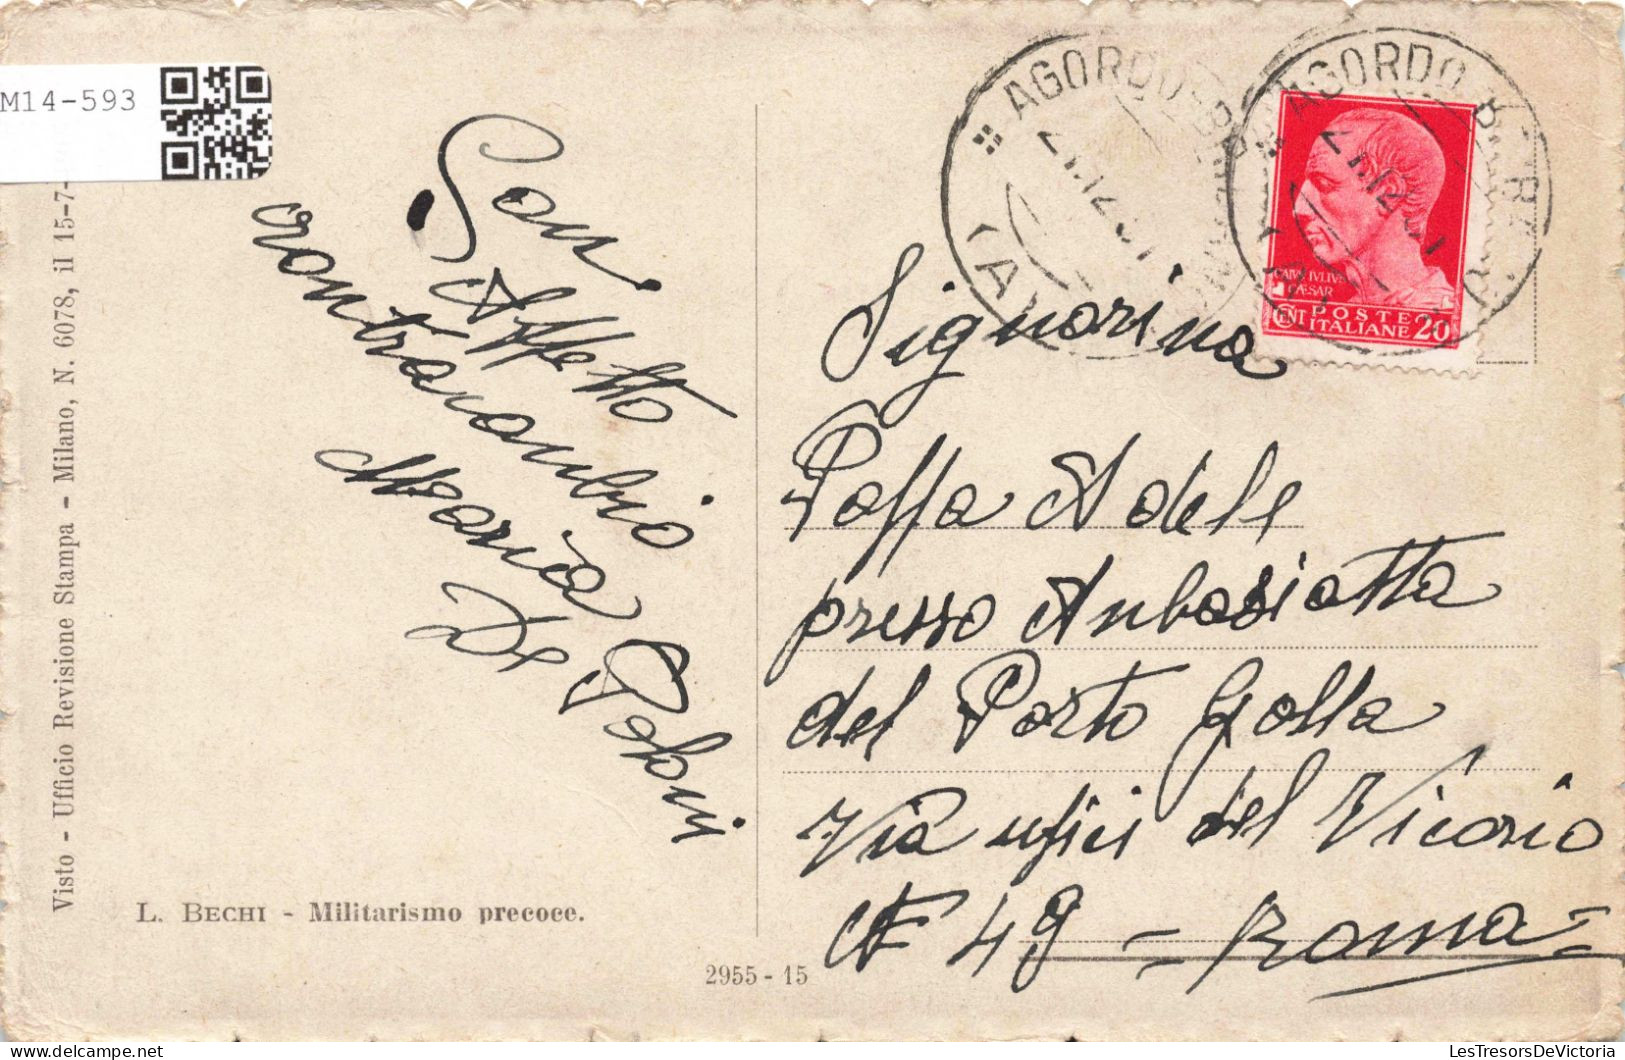 M14-593
Visto - Ufficio Revisione Stampa - Milano, N. 6078, il 15-7-
Con
Affetto
contracambio
Maria
De Toni
L. BECHI - Militarismo precoce.
2955 - 15
AGORDO
AGORDO
CAIVS IVLIVS
CÆSAR
POSTE
CENT ITALIANE 20
Signorina
Adele
presso Anbasiatta
del Porto Golla
Via ufici del Vicario
49 - Roma -
LesTresorsDeVictoria